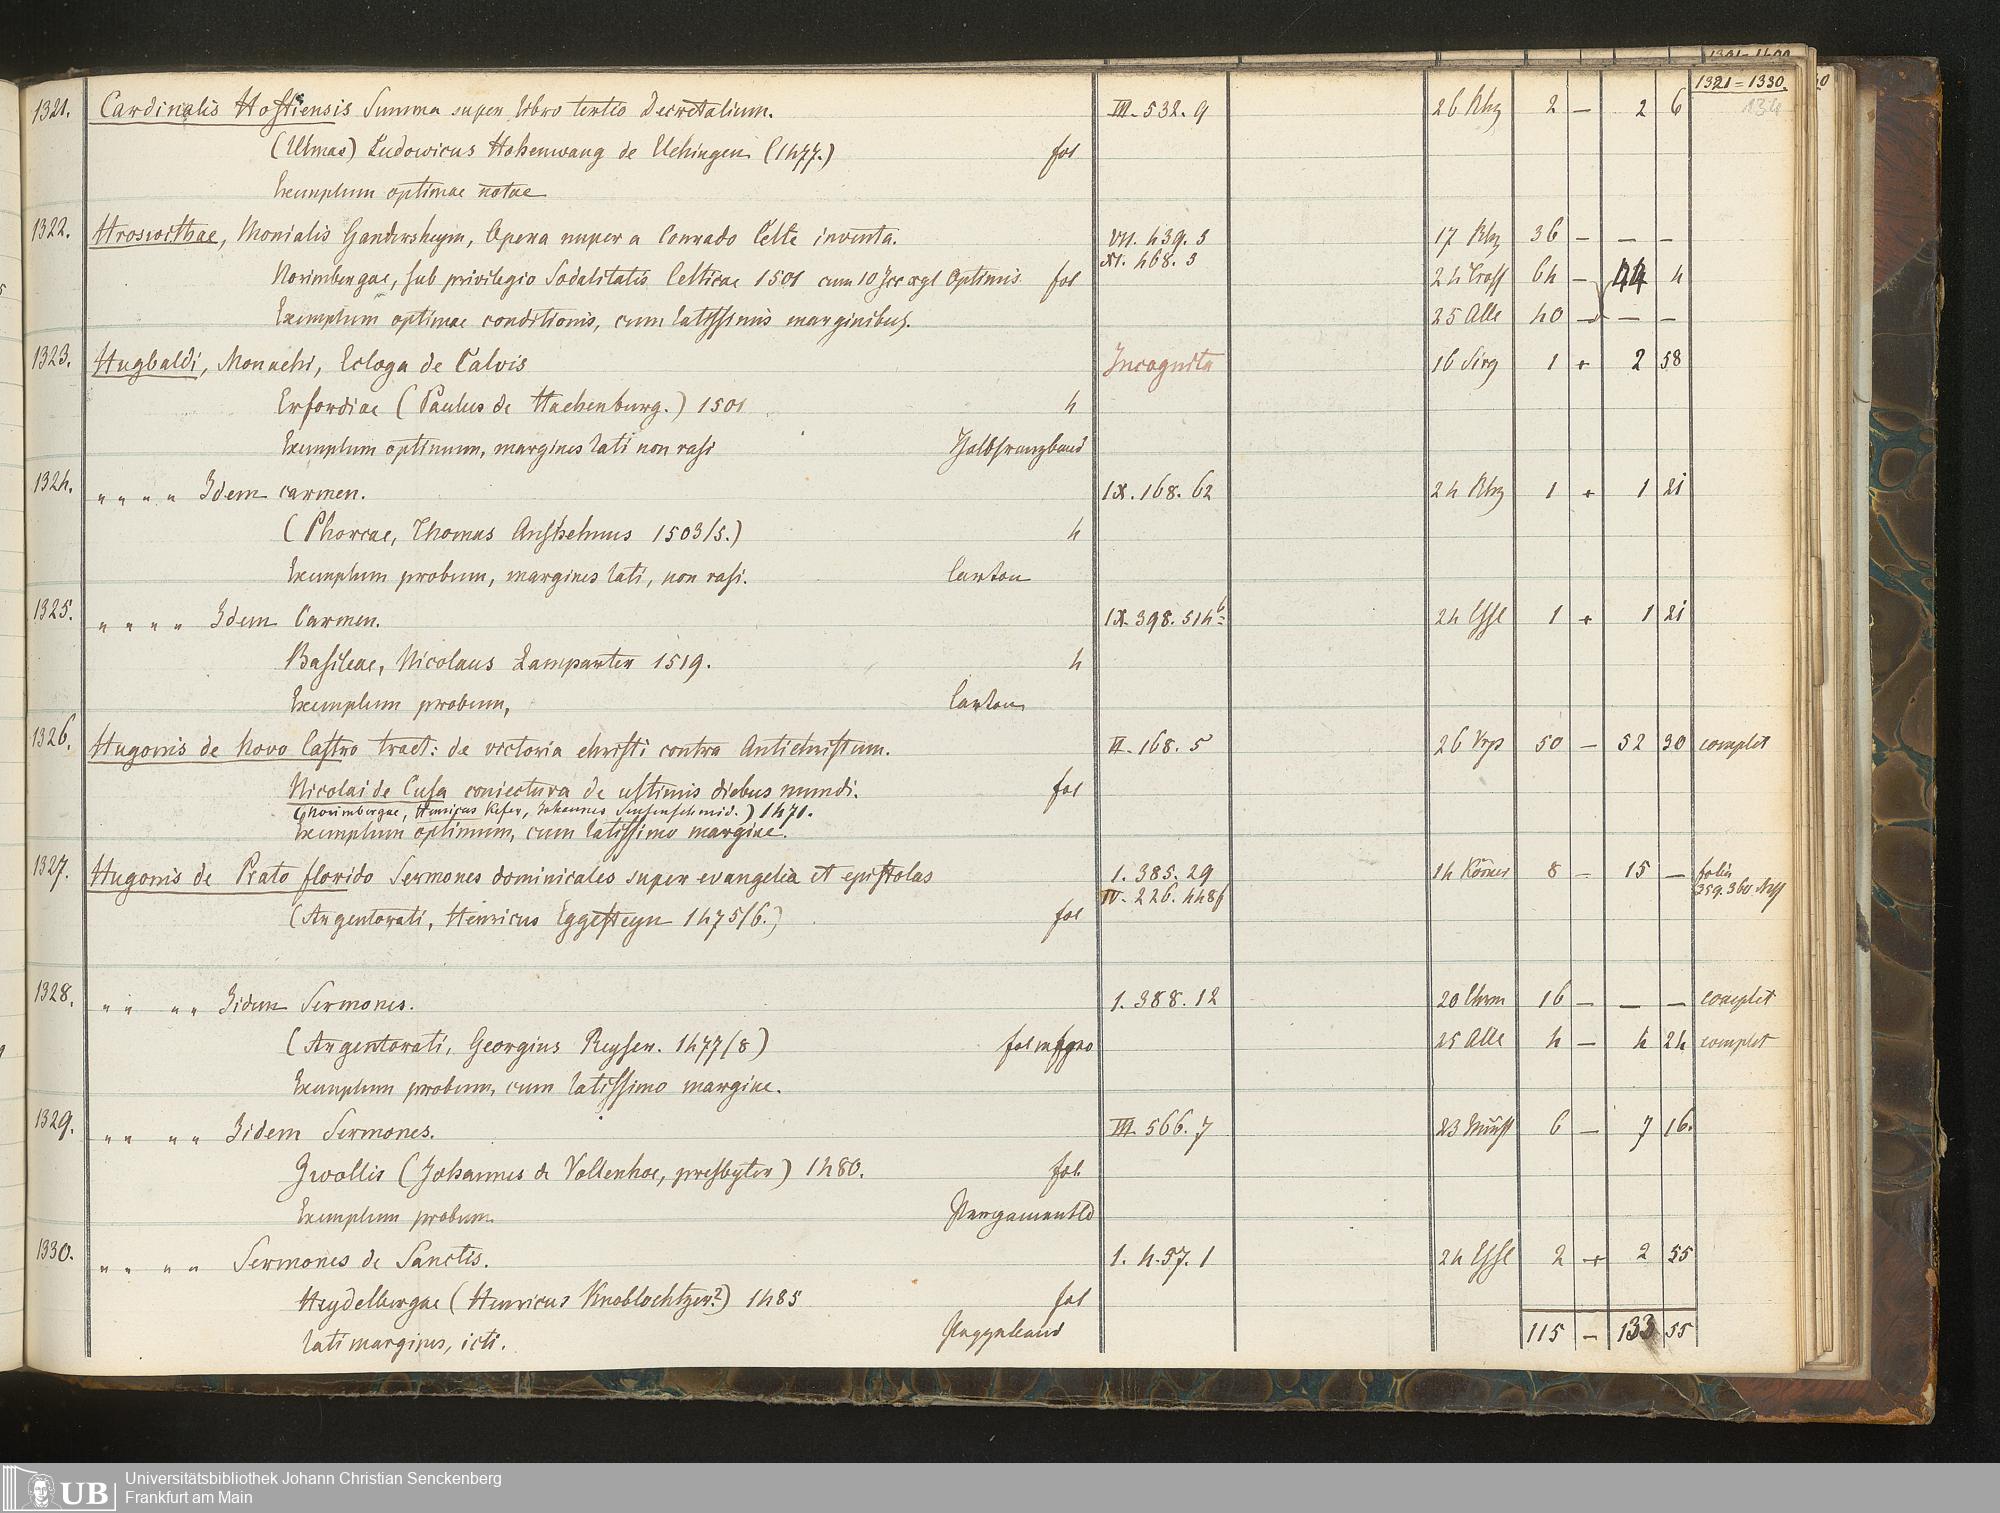 1321 = 1330.
134
1321. Cardinalis Hostiensis Summa super libro tertio Decretalium. III. 532. 9 26 Rhz 2 — 2 6
(Ulmae) Ludowicus Hohenwang de Elchingen (1477.) fol
Exemplum optimae notae
1322. Hroswithae, Monialis Gandersheym, Opera nuper a Conrado Celte inventa. VII. 439. 3 17 Rhz 36 — — —
XI. 468. 3
Norimbergae, sub privilegio Sodalitatis Celticae 1501 cum 10 xyl Optimis fol 24 64 — 44 4
Exemplum optimae conditionis, cum latissimis marginibus. 25 Alle 40 — — —
1323. Hugbaldi, Monachi, Ecloga de Calvis Incognita 16 1 + 2 58
Erfordiae (Paulus de Hachenburg.) 1501 4
Exemplum optimum, margines lati non rasi Halbfranzband
1324. „ „ „ „ Idem carmen. IX. 168. 62 24 Rhz 1 + 1 21
(Phorcae, Thomas Anshelmus 1503/5.) 4
Exemplum probum, margines lati, non rasi. Carton
1325. „ „ „ „ Idem Carmen. IX. 398. 514b 24 Essl 1 + 1 21
Basileae, Nicolaus Lamparter 1519. 4
Exemplum probum, Carton
1326. Hugonis de Novo Castro tract: de victoria christi contra Antichristum. II. 168. 5 26 50 — 52 30 complet
Nicolai de Cusa coniectura de ultimis diebus mundi. fol
(Norimbergae, Henricus Kefer, Johannes Sensenschmid.) 1471.
Exemplum optimum, cum latissimo margine.
1327. Hugonis de Prato florido Sermones dominicales super evangelia et epistolas I. 385. 29 14 Körner 8 — 15 — folia
IV. 226. 4486 359. 360
(Argentorati, Henricus Eggesteyn 1475/6.) fol
1328. „ „ „ „ Iidem Sermones. I. 388. 12 20 16 — — — complet
(Argentorati, Georgius Reyser. 1477/8) fol 25 Alle 4 — 4 24 complet
Exemplum probum, cum latissimo margine.
1329. „ „ „ „ Iidem Sermones. III 566. 7 23 6 — 7 16.
Zwollis (Johannes de Vollenhoe, presbyter) 1480. fol.
Exemplum probum. Pergamentbd
1330. „ „ „ „ Sermones de Sanctis. I. 457. 1 24 Essl 2 + 2 55
Heydelbergae (Henricus Knoblochtzer?) 1485 fol
lati margines, icti. Pappband 115 — 133 55
UB Universitätsbibliothek Johann Christian Senckenberg
Frankfurt am Main